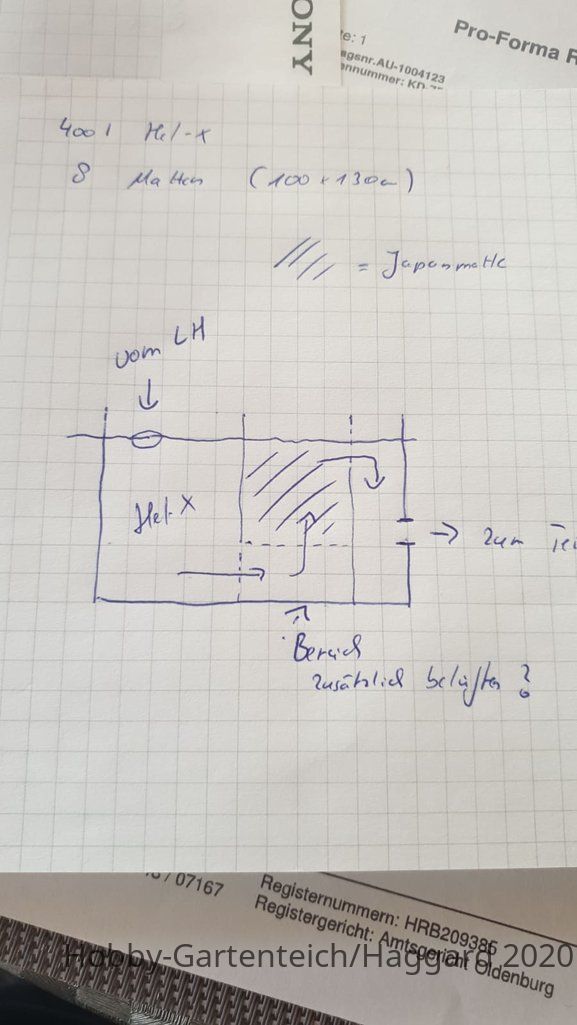 ONY
te: 1
Pro-Forma R
agsnr.AU-1004123
400 l Hel-X
8 Matten (100 x 130cm)
= Japanmatte
vom LH
Hel-X
zum Tei
Bereich
zusätzlich belüften ?
/ 07167
Registernummern: HRB209385
Registergericht: Amtsgericht Oldenburg
Hobby-Gartenteich/Haggard 2020